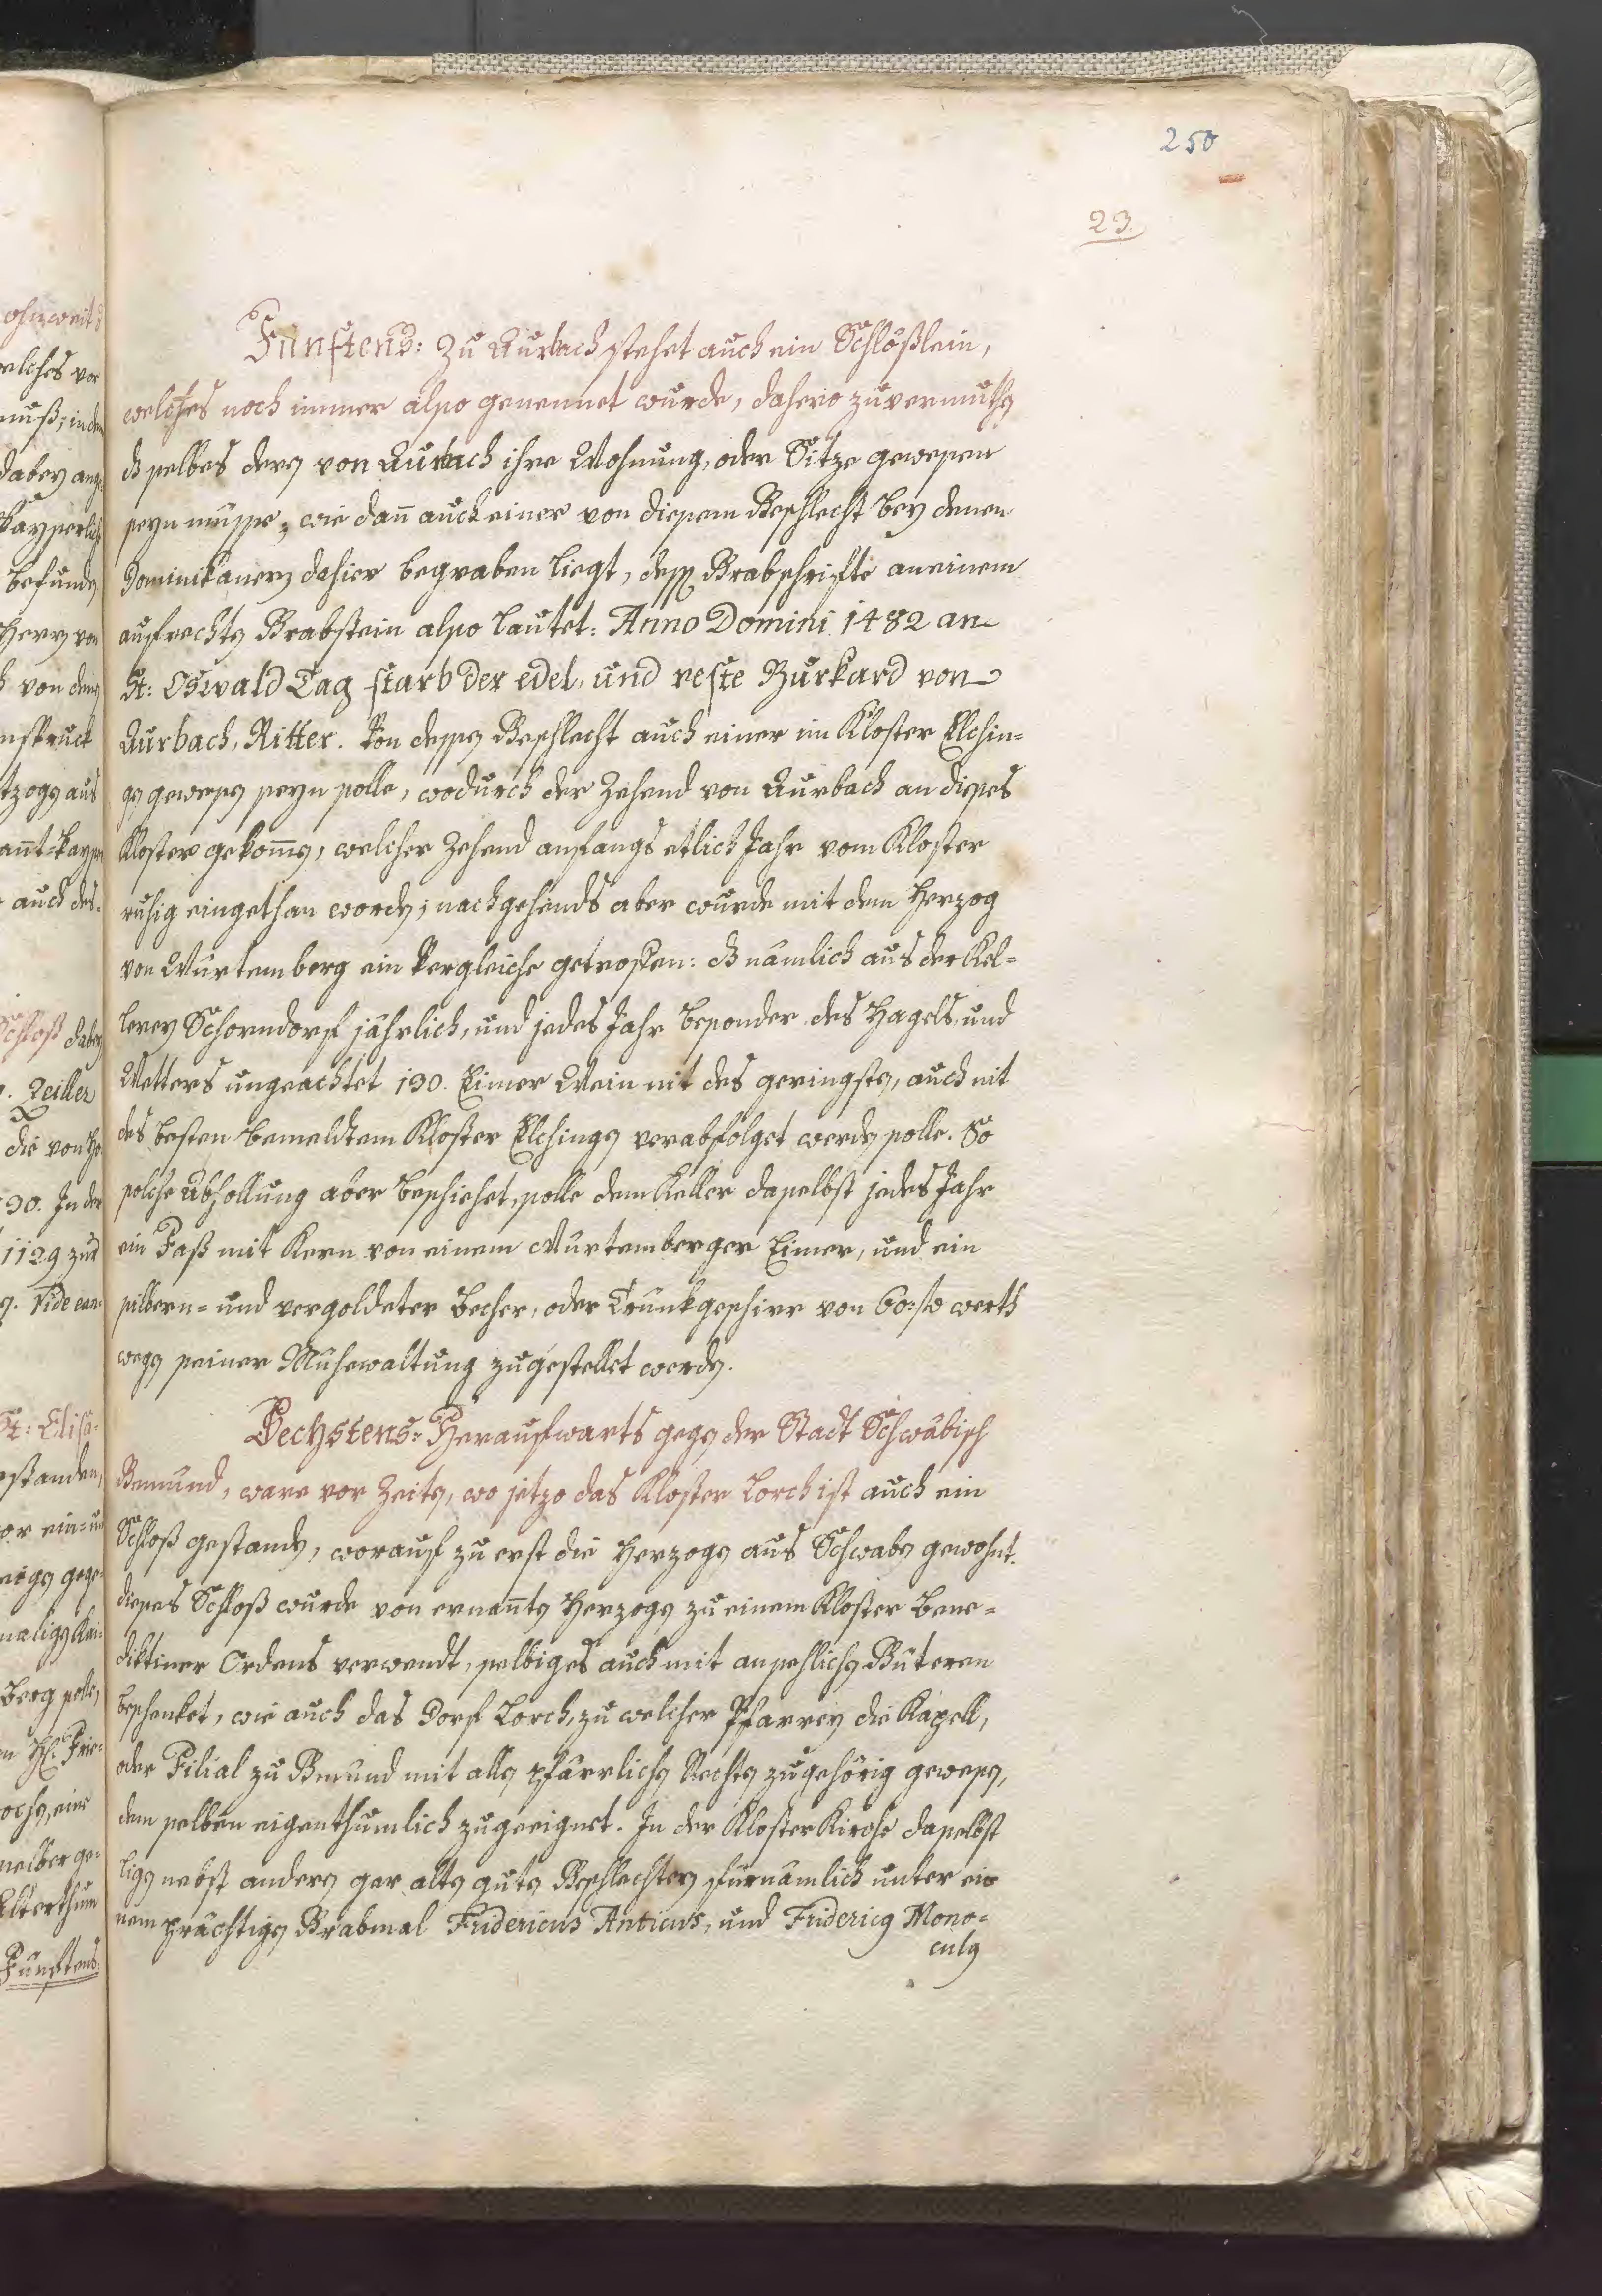 250
23.
Fünftens: Zu Aurbach stehet auch ein Schlößlein,
welches noch immer also genennet wurde, dahero zuvermuthen
dß selbes deren von Aurbach ihre Wohnung, oder Sitze gewesen
seyn müsse, wie dañ auch einer von diesem Geschlecht bey denen
Dominikanern dahier begraben liegt, dessen Grabschrifte an einem
aufrechten Grabstein also lautet: Anno Domini 1482 an
St: Oswald Tag starb der edel, und veste Burkard von
Aurbach, Ritter. Von dessen Geschlecht auch einer im Kloster Elchin=
gen gewesen seyn solle, wodurch der Zehend von Aurbach an dieses
Kloster gekom̄en, welcher Zehend anfangs etlich Jahr vom Kloster
ruhig eingethan worden; nachgehends aber wurde mit dem Herzog
von Würtemberg ein Vergleiche getroffen: dß nämlich aus der Kel=
lerey Schorndorf jährlich, und jedes Jahr besonder des Hagels, und
Wetters ungeachtet 130. Eimer Wein nit des geringsten, auch nit
des besten bemeldtem Kloster Elchingen verabfolget werden solle. So
solche Abhollung aber beschiehet, solle dem Keller daselbst jedes Jahr
ein Faß mit Kern von einem Würtemberger Eimer, und ein
silbern= und vergoldeter Becher, oder Trünkgeschirr von 60: fl werth
wegen seiner Mühewaltung zugestellet werden.
Sechstens: Heraufwärts gegen der Stadt Schwäbisch
Gemünd, ware vor Zeiten, wo jetzo das Kloster Lorch ist auch ein
Schloß gestanden, worauf zu erst die Herzogen aus Schwaben gewohnt.
dieses Schloß wurde von ernañten Herzogen zu einem Kloster Bene=
diktiner Ordens verwendt, selbiges auch mit ansehlichen Güteren
beschenket, wie auch das Dorf Lorch, zu welcher Pfarrey die Kapell,
oder Filial zu Gmünd mit allen pfärrlichen Rechten zugehörig gewesen,
dem selben eigenthumlich zugeeignet. In der Kloster Kirche daselbst
ligen nebst andern gar alten guten Geschlechtern fürnämlich unter ei=
nem prächtigen Grabmal Fridericus Anticus, und Fridericus Mono=
culus